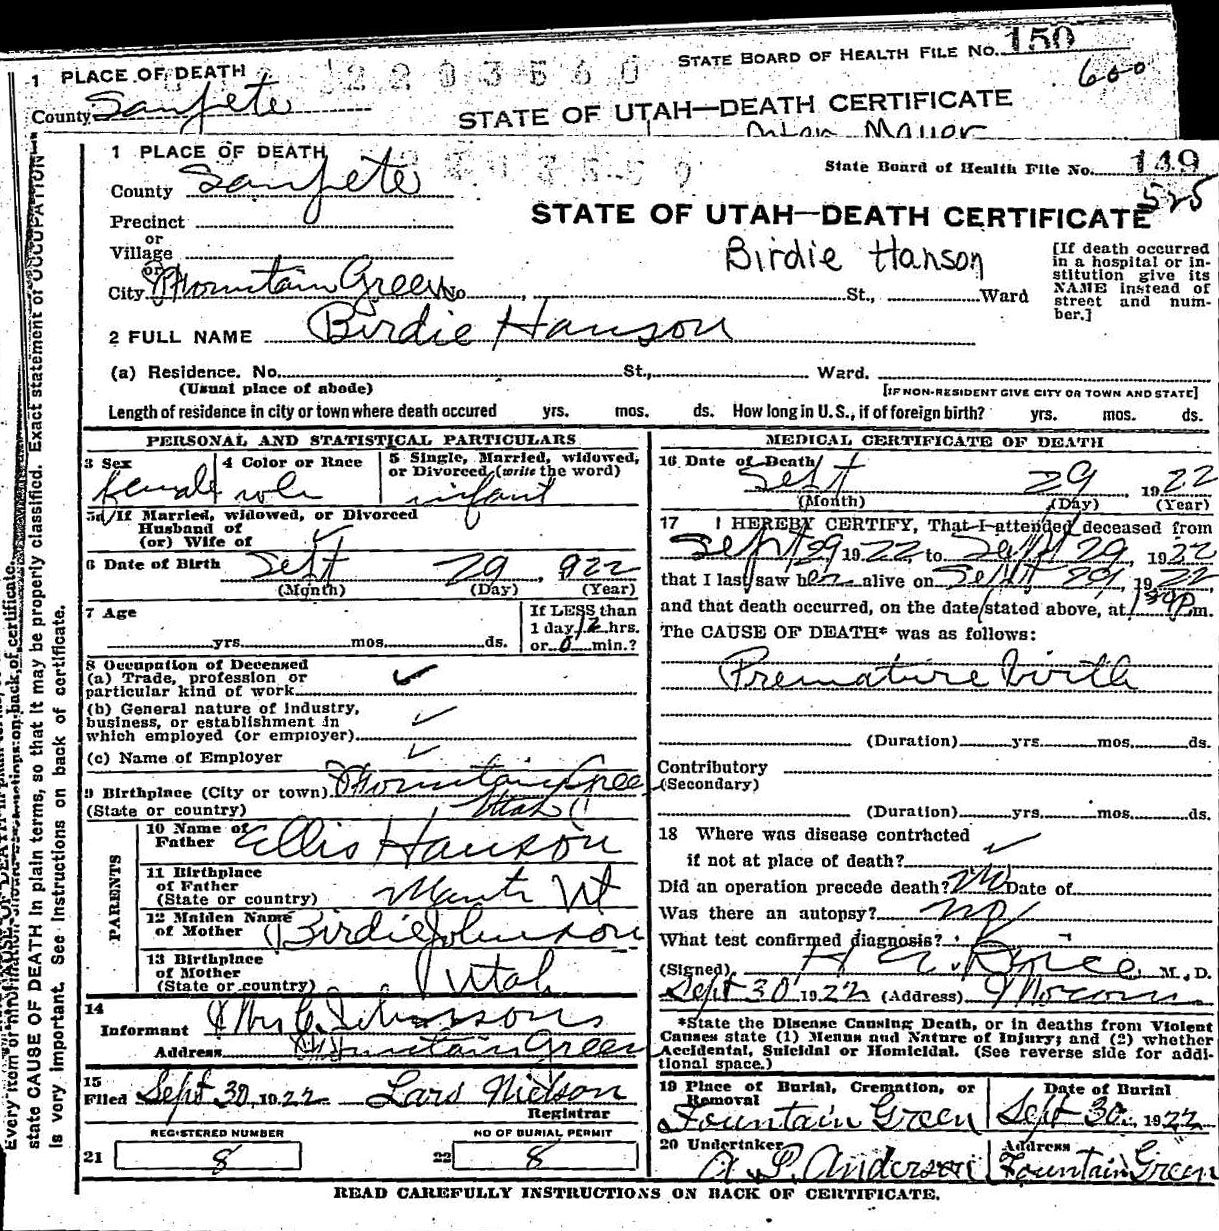 1 PLACE OF DEATH
STATE BOARD OF HEALTH FILE NO. 150
600
County Sanpete
STATE OF UTAH—DEATH CERTIFICATE
1 PLACE OF DEATH
State Board of Health File No. 149
525
County Sanpete
STATE OF UTAH—DEATH CERTIFICATE
Precinct
or
Village
or
City Mountain Green No. St., Ward
Birdie Hanson
[If death occurred
in a hospital or in-
stitution give its
NAME instead of
street and num-
ber.]
2 FULL NAME Birdie Hanson
(a) Residence. No. St., Ward.
(Usual place of abode)
[IF NON-RESIDENT GIVE CITY OR TOWN AND STATE]
Length of residence in city or town where death occured yrs. mos. ds. How long in U. S., if of foreign birth? yrs. mos. ds.
PERSONAL AND STATISTICAL PARTICULARS
3 Sex female
4 Color or Race
5 Single, Married, widowed,
or Divorced (write the word)
infant
5a If Married, widowed, or Divorced
Husband of
(or) Wife of
6 Date of Birth Sept 29, 922
(Month) (Day) (Year)
7 Age
yrs. mos. ds.
If LESS than
1 day 12 hrs.
or 0 min.?
8 Occupation of Deceased
(a) Trade, profession or
particular kind of work
(b) General nature of industry,
business, or establishment in
which employed (or employer)
(c) Name of Employer
9 Birthplace (City or town) Mountain Green
(State or country) Utah
PARENTS
10 Name of
Father Ellis Hanson
11 Birthplace
of Father
(State or country) Manti Ut
12 Maiden Name
of Mother Birdie Johnson
13 Birthplace
of Mother
(State or country) Utah
14
Informant Mrs C.
Address Mountain Green
15
Filed Sept 30, 1922 Lars Nielson
Registrar
REGISTERED NUMBER
21 8
NO OF BURIAL PERMIT
22 8
MEDICAL CERTIFICATE OF DEATH
16 Date of Death
Sept 29, 1922
(Month) (Day) (Year)
17 I HEREBY CERTIFY, That I attended deceased from
Sept 29 1922, to Sept 29, 1922
that I last saw her alive on Sept 29, 1922,
and that death occurred, on the date stated above, at m.
The CAUSE OF DEATH* was as follows:
Premature birth
(Duration) yrs. mos. ds.
Contributory
(Secondary)
(Duration) yrs. mos. ds.
18 Where was disease contracted
if not at place of death?
Did an operation precede death? no Date of
Was there an autopsy? no
What test confirmed diagnosis?
(Signed) M. D.
Sept 30 1922 (Address)
*State the Disease Causing Death, or in deaths from Violent
Causes state (1) Means and Nature of Injury; and (2) whether
Accidental, Suicidal or Homicidal. (See reverse side for addi-
tional space.)
19 Place of Burial, Cremation, or
Removal
Fountain Green
Date of Burial
Sept 30, 1922
20 Undertaker
A. P. Anderson
Address
Fountain Green
READ CAREFULLY INSTRUCTIONS ON BACK OF CERTIFICATE.
state CAUSE OF DEATH in plain terms, so that it may be properly classified. Exact statement of OCCUPATION
is very important. See instructions on back of certificate.